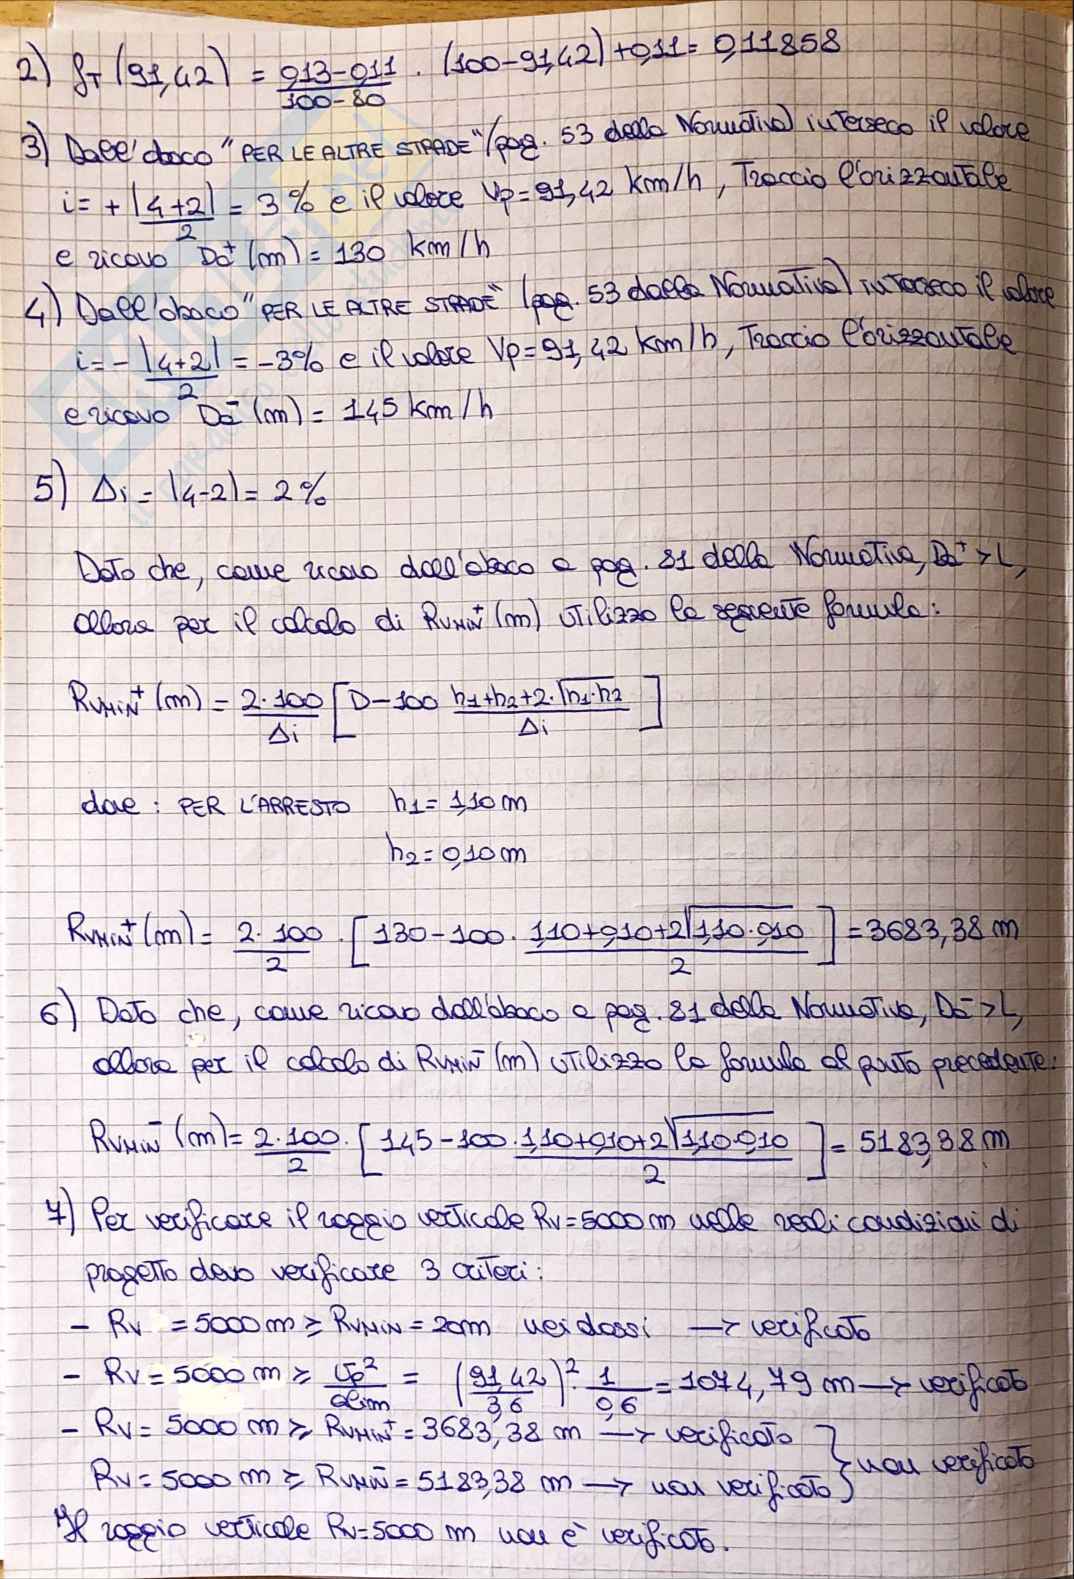 2) fT (91,42) = 0,13-0,11 / 100-80 · (100-91,42)+0,11 = 0,11858
3) Dall'abaco "PER LE ALTRE STRADE" (pag. 53 della Normativa) interseco il valore
i = + |4+2| / 2 = 3% e il valore Vp=91,42 km/h, Traccio l'orizzontale
e ricavo Da+ (m) = 130 km/h
4) Dall'abaco "PER LE ALTRE STRADE" (pag. 53 della Normativa) interseco il valore
i = - |4+2| / 2 = -3% e il valore Vp=91,42 km/h, Traccio l'orizzontale
e ricavo Da- (m) = 145 km/h
5) Δi = |4-2| = 2%
Dato che, come ricavo dall'abaco a pag. 81 della Normativa, Da+ > L,
allora per il calcolo di RvMIN+ (m) utilizzo la seguente formula:
RvMIN+ (m) = 2·100 / Δi [ D-100 h1+h2+2·√h1·h2 / Δi ]
dove: PER L'ARRESTO h1 = 1,10 m
h2 = 0,10 m
RvMIN+ (m) = 2·100 / 2 · [ 130-100 · 1,10+0,10+2√1,10·0,10 / 2 ] = 3683,38 m
6) Dato che, come ricavo dall'abaco a pag. 81 della Normativa, Da- > L,
allora per il calcolo di RvMIN- (m) utilizzo la formula al punto precedente:
RvMIN- (m) = 2·100 / 2 · [ 145-100 · 1,10+0,10+2√1,10·0,10 / 2 ] = 5183,38 m
7) Per verificare il raggio verticale Rv=5000 m nelle reali condizioni di
progetto devo verificare 3 criteri:
- Rv = 5000 m ≥ RvMIN = 20m nei dossi → verificato
- Rv = 5000 m ≥ Vp² / alim = (91,42 / 3,6)² · 1 / 0,6 = 1074,79 m → verificato
- Rv = 5000 m ≥ RvMIN+ = 3683,38 m → verificato
Rv = 5000 m ≥ RvMIN- = 5183,38 m → non verificato } non verificato
Il raggio verticale Rv=5000 m non è verificato.